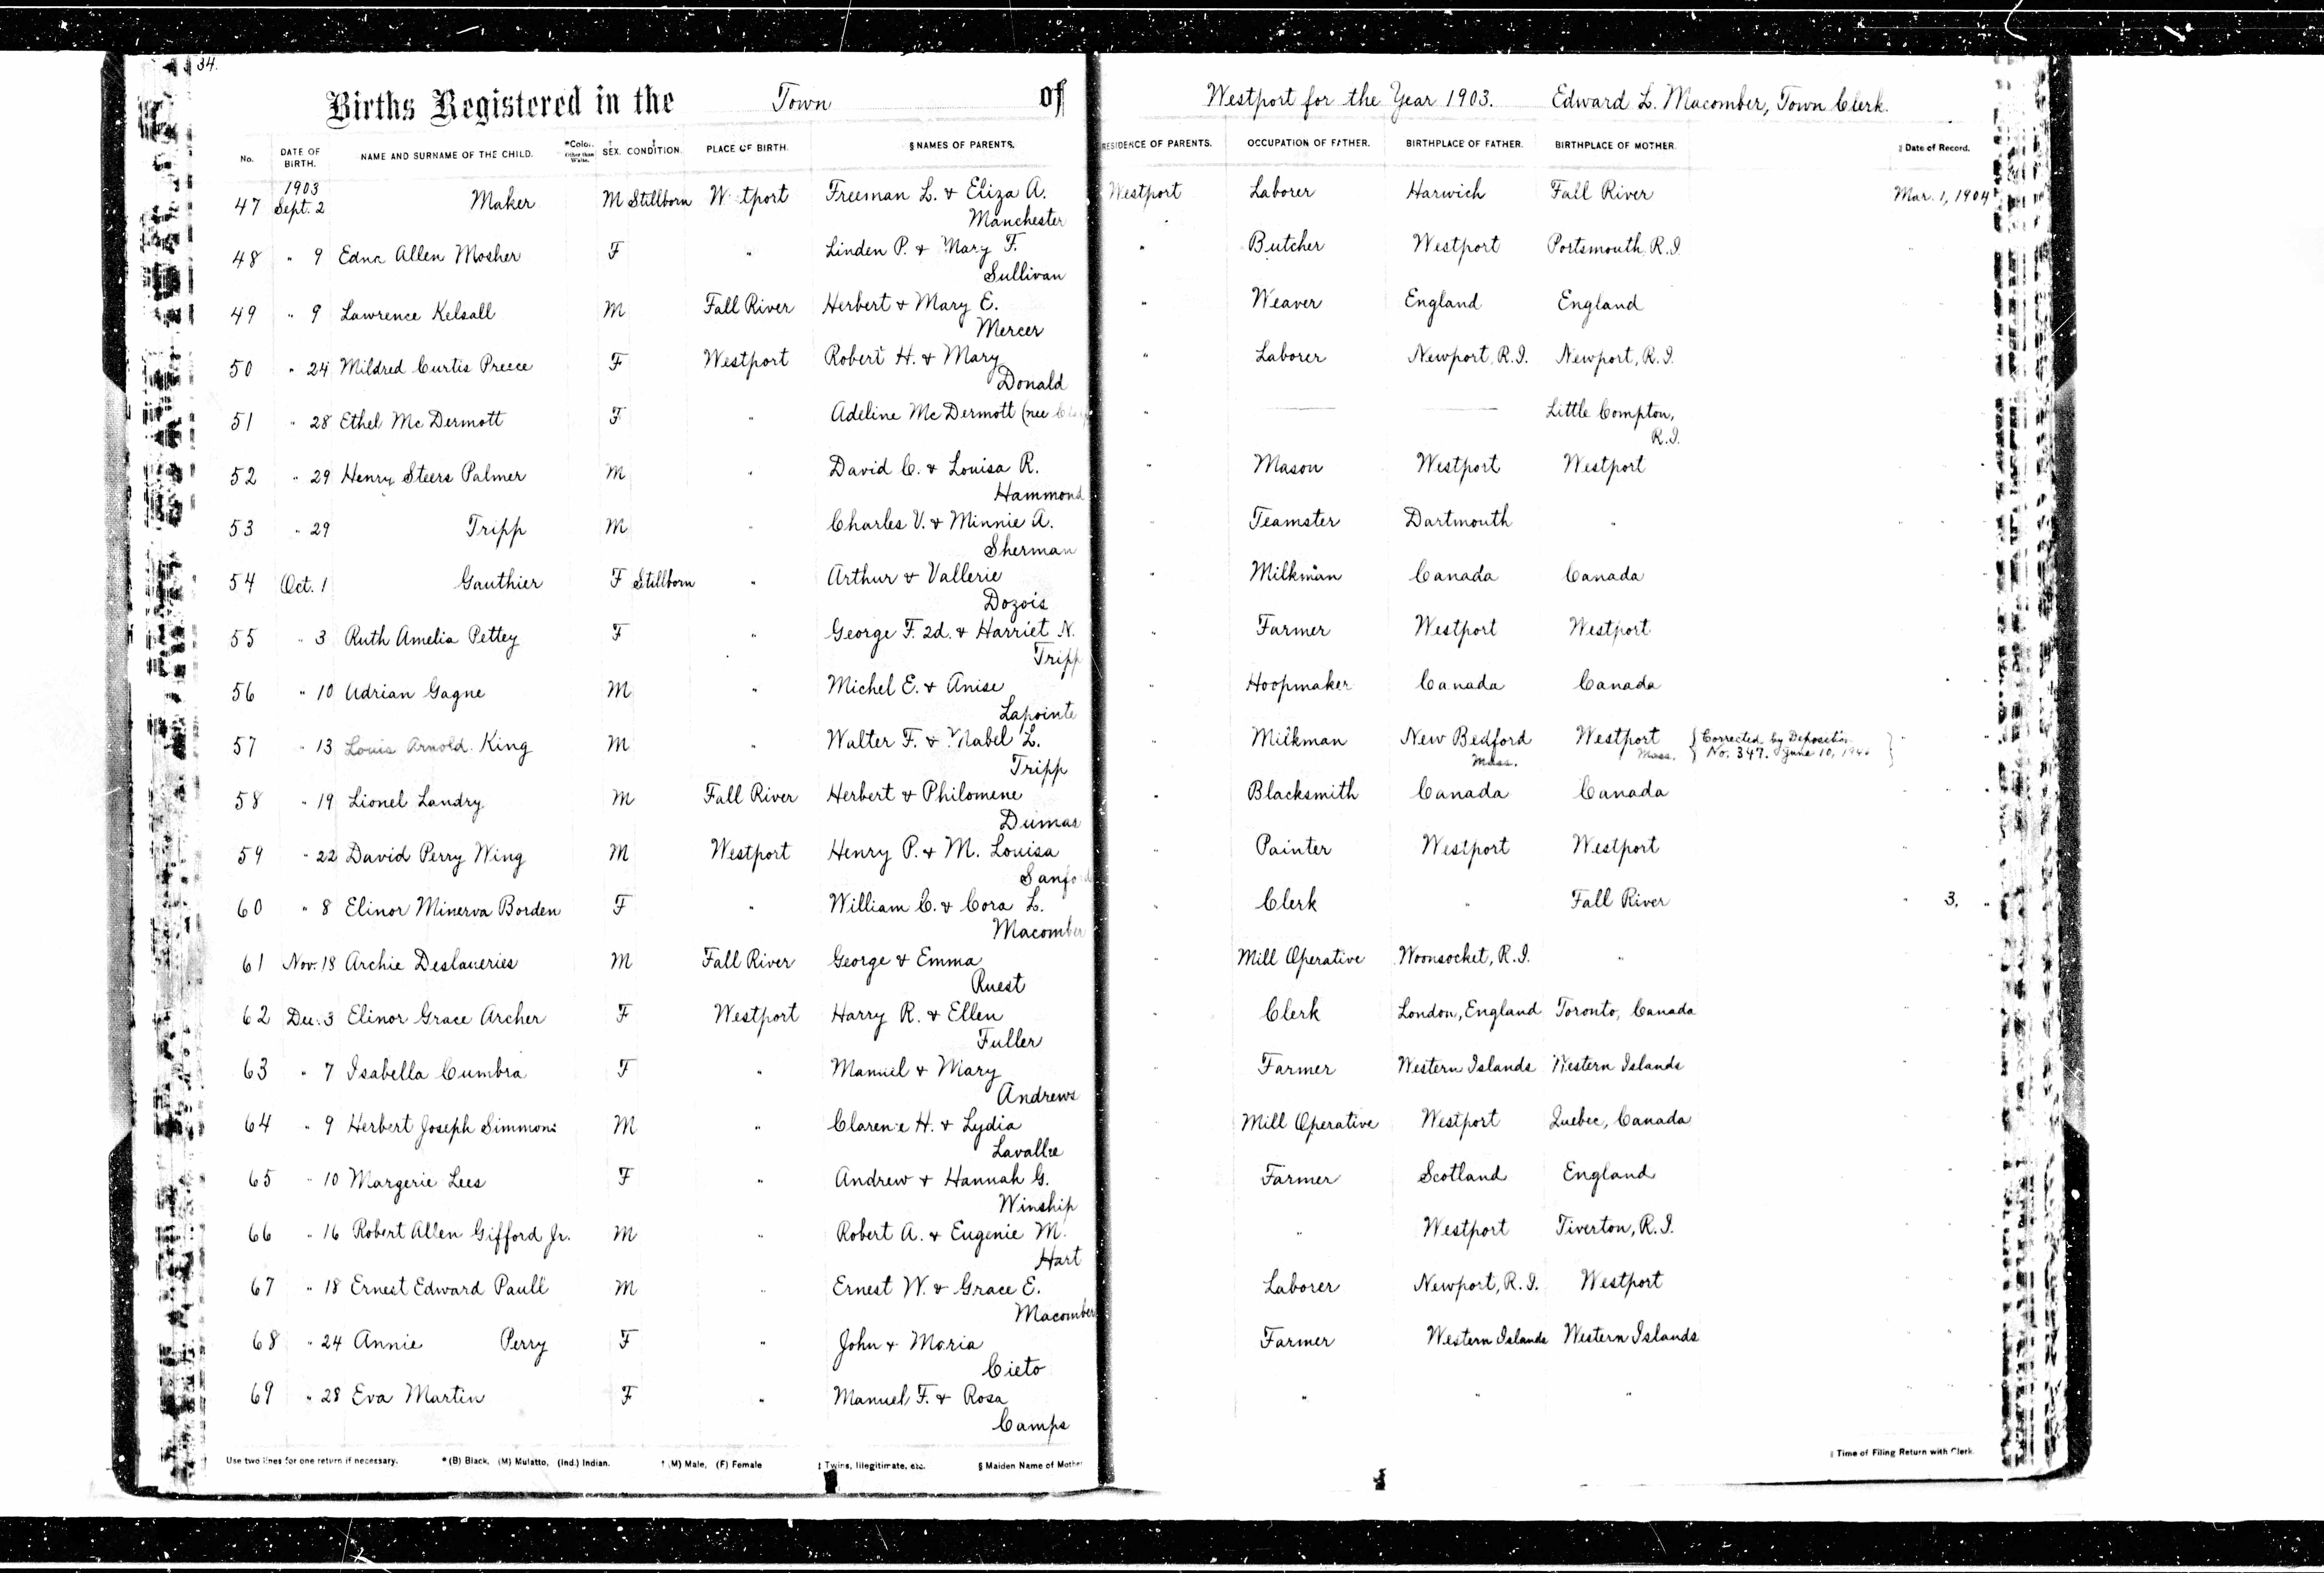 34.
Births Registered in the Town of Westport for the Year 1903. Edward L. Macomber, Town Clerk.
No. DATE OF BIRTH. NAME AND SURNAME OF THE CHILD. *Color. Other than White. SEX. CONDITION. PLACE OF BIRTH. § NAMES OF PARENTS. RESIDENCE OF PARENTS. OCCUPATION OF FATHER. BIRTHPLACE OF FATHER. BIRTHPLACE OF MOTHER. Date of Record.
1903
47 Sept. 2 Maker M Stillborn Westport Freeman L. & Eliza A. Westport Laborer Harwich Fall River Mar. 1, 1904
Manchester
48 " 9 Edna Allen Mosher F " Linden P. & Mary F. " Butcher Westport Portsmouth, R.I. "
Sullivan
49 " 9 Lawrence Kelsall M Fall River Herbert & Mary E. " Weaver England England
Mercer
50 " 24 Mildred Curtis Preece F Westport Robert H. & Mary " Laborer Newport, R.I. Newport, R.I.
Donald
51 " 28 Ethel Mc Dermott F " Adeline Mc Dermott (nee " — — Little Compton,
R.I.
52 " 29 Henry Steers Palmer M " David C. & Louisa R. " Mason Westport Westport
Hammond
53 " 29 Tripp M " Charles V. & Minnie A. " Teamster Dartmouth "
Sherman
54 Oct. 1 Gauthier F Stillborn " Arthur & Vallerie " Milkman Canada Canada
Dozois
55 " 3 Ruth Amelia Pettey F " George F. 2d. & Harriet N. " Farmer Westport Westport
Tripp
56 " 10 Adrian Gagne M " Michel E. & Anise " Hoopmaker Canada Canada
Lapointe
57 " 13 Louis Arnold King M " Walter F. & Mabel L. Milkman New Bedford Westport { Corrected by Deposition }
Tripp Mass. Mass. { No. 347. June 10, }
58 " 19 Lionel Landry M Fall River Herbert & Philomene " Blacksmith Canada Canada
Dumas
59 " 22 David Perry Wing M Westport Henry P. & M. Louisa " Painter Westport Westport
Sanford
60 " 8 Elinor Minerva Borden F " William C. & Cora L. " Clerk " Fall River " 3, "
Macomber
61 Nov. 18 Archie Deslaueries M Fall River George & Emma " Mill Operative Woonsocket, R.I. "
Ruest
62 Dec. 3 Elinor Grace Archer F Westport Harry R. & Ellen " Clerk London, England Toronto, Canada
Fuller
63 " 7 Isabella Cumbra F " Manuel & Mary " Farmer Western Islands Western Islands
Andrews
64 " 9 Herbert Joseph Simmons M " Clarence H. & Lydia Mill Operative Westport Quebec, Canada
Lavallee
65 " 10 Margerie Lees F " Andrew & Hannah G. " Farmer Scotland England
Winship
66 " 16 Robert Allen Gifford Jr. M " Robert A. & Eugenie M. " Westport Tiverton, R.I.
Hart
67 " 18 Ernest Edward Paull M " Ernest W. & Grace E. Laborer Newport, R.I. Westport
Macomber
68 " 24 Annie Perry F " John & Maria Farmer Western Islands Western Islands
Cieto
69 " 28 Eva Martin F " Manuel F. & Rosa " " " "
Camps
Use two lines for one return if necessary. * (B) Black, (M) Mulatto, (Ind.) Indian. † (M) Male, (F) Female ‡ Twins, Illegitimate, etc. § Maiden Name of Mother ‖ Time of Filing Return with Clerk.